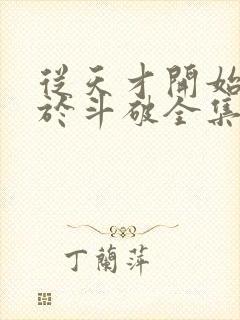 從天才開始
於斗破全集
丁蘭萍